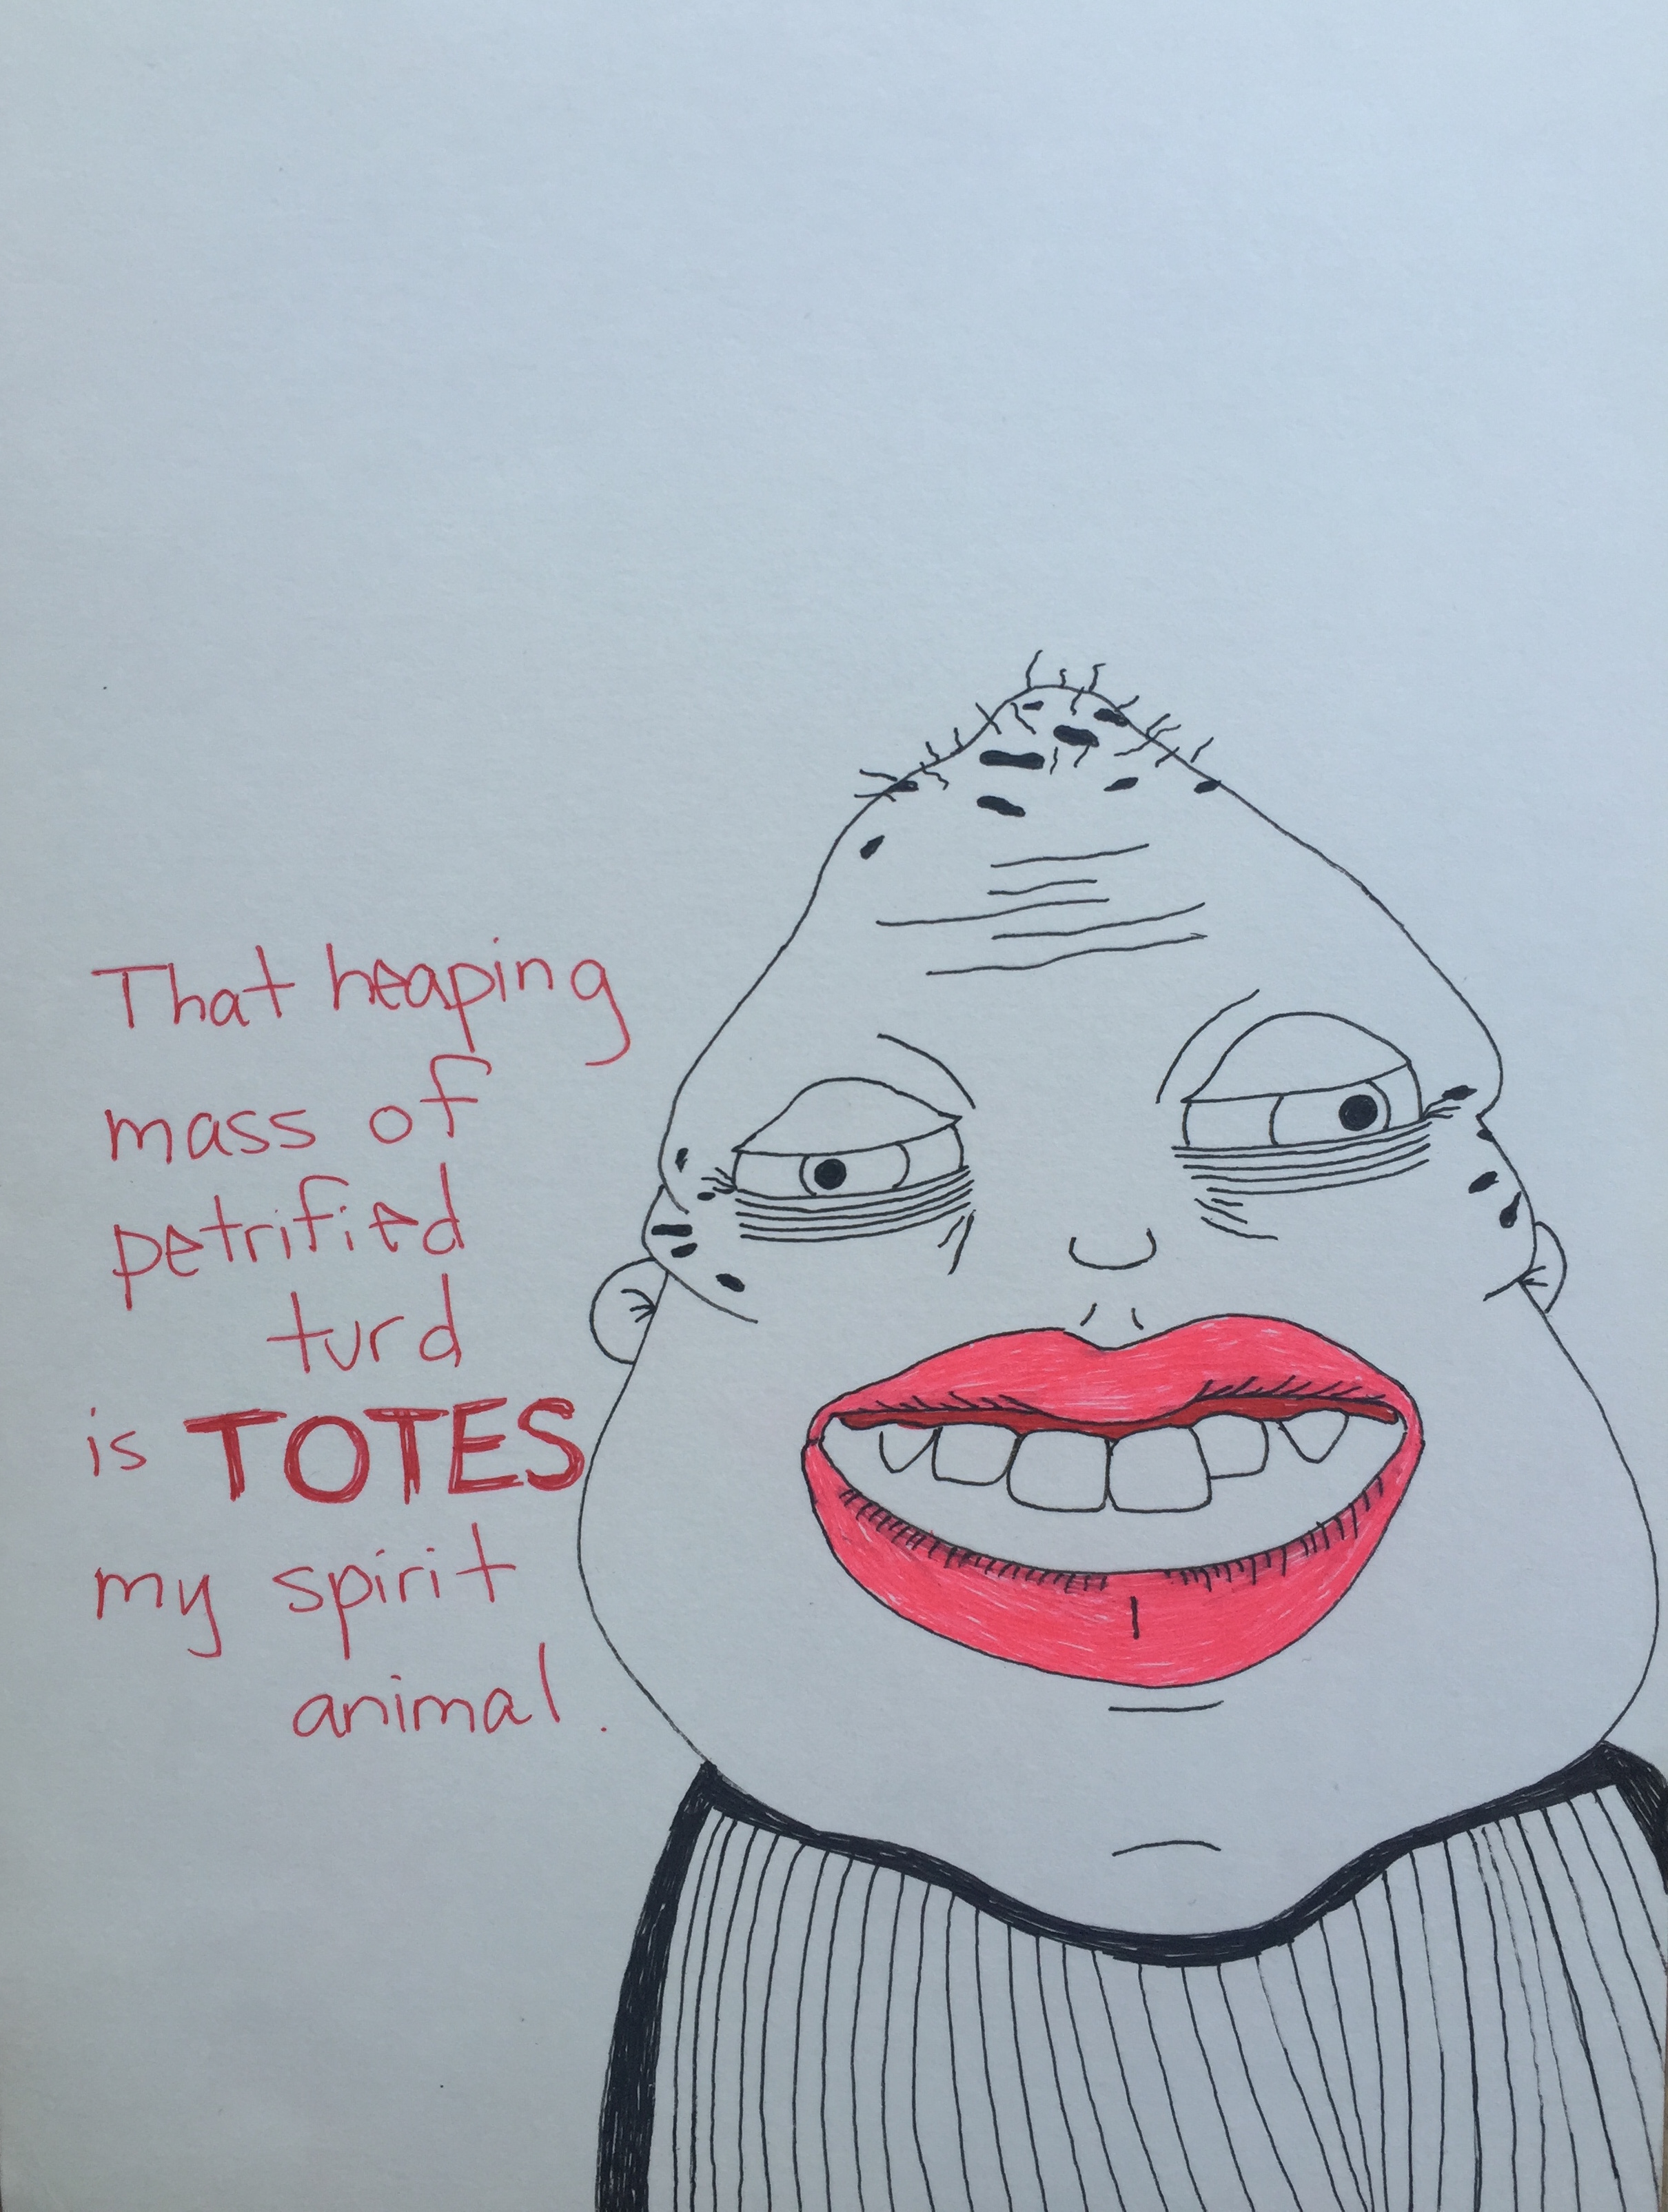 That heaping
mass of
petrified
turd
is TOTES
my spirit
animal.